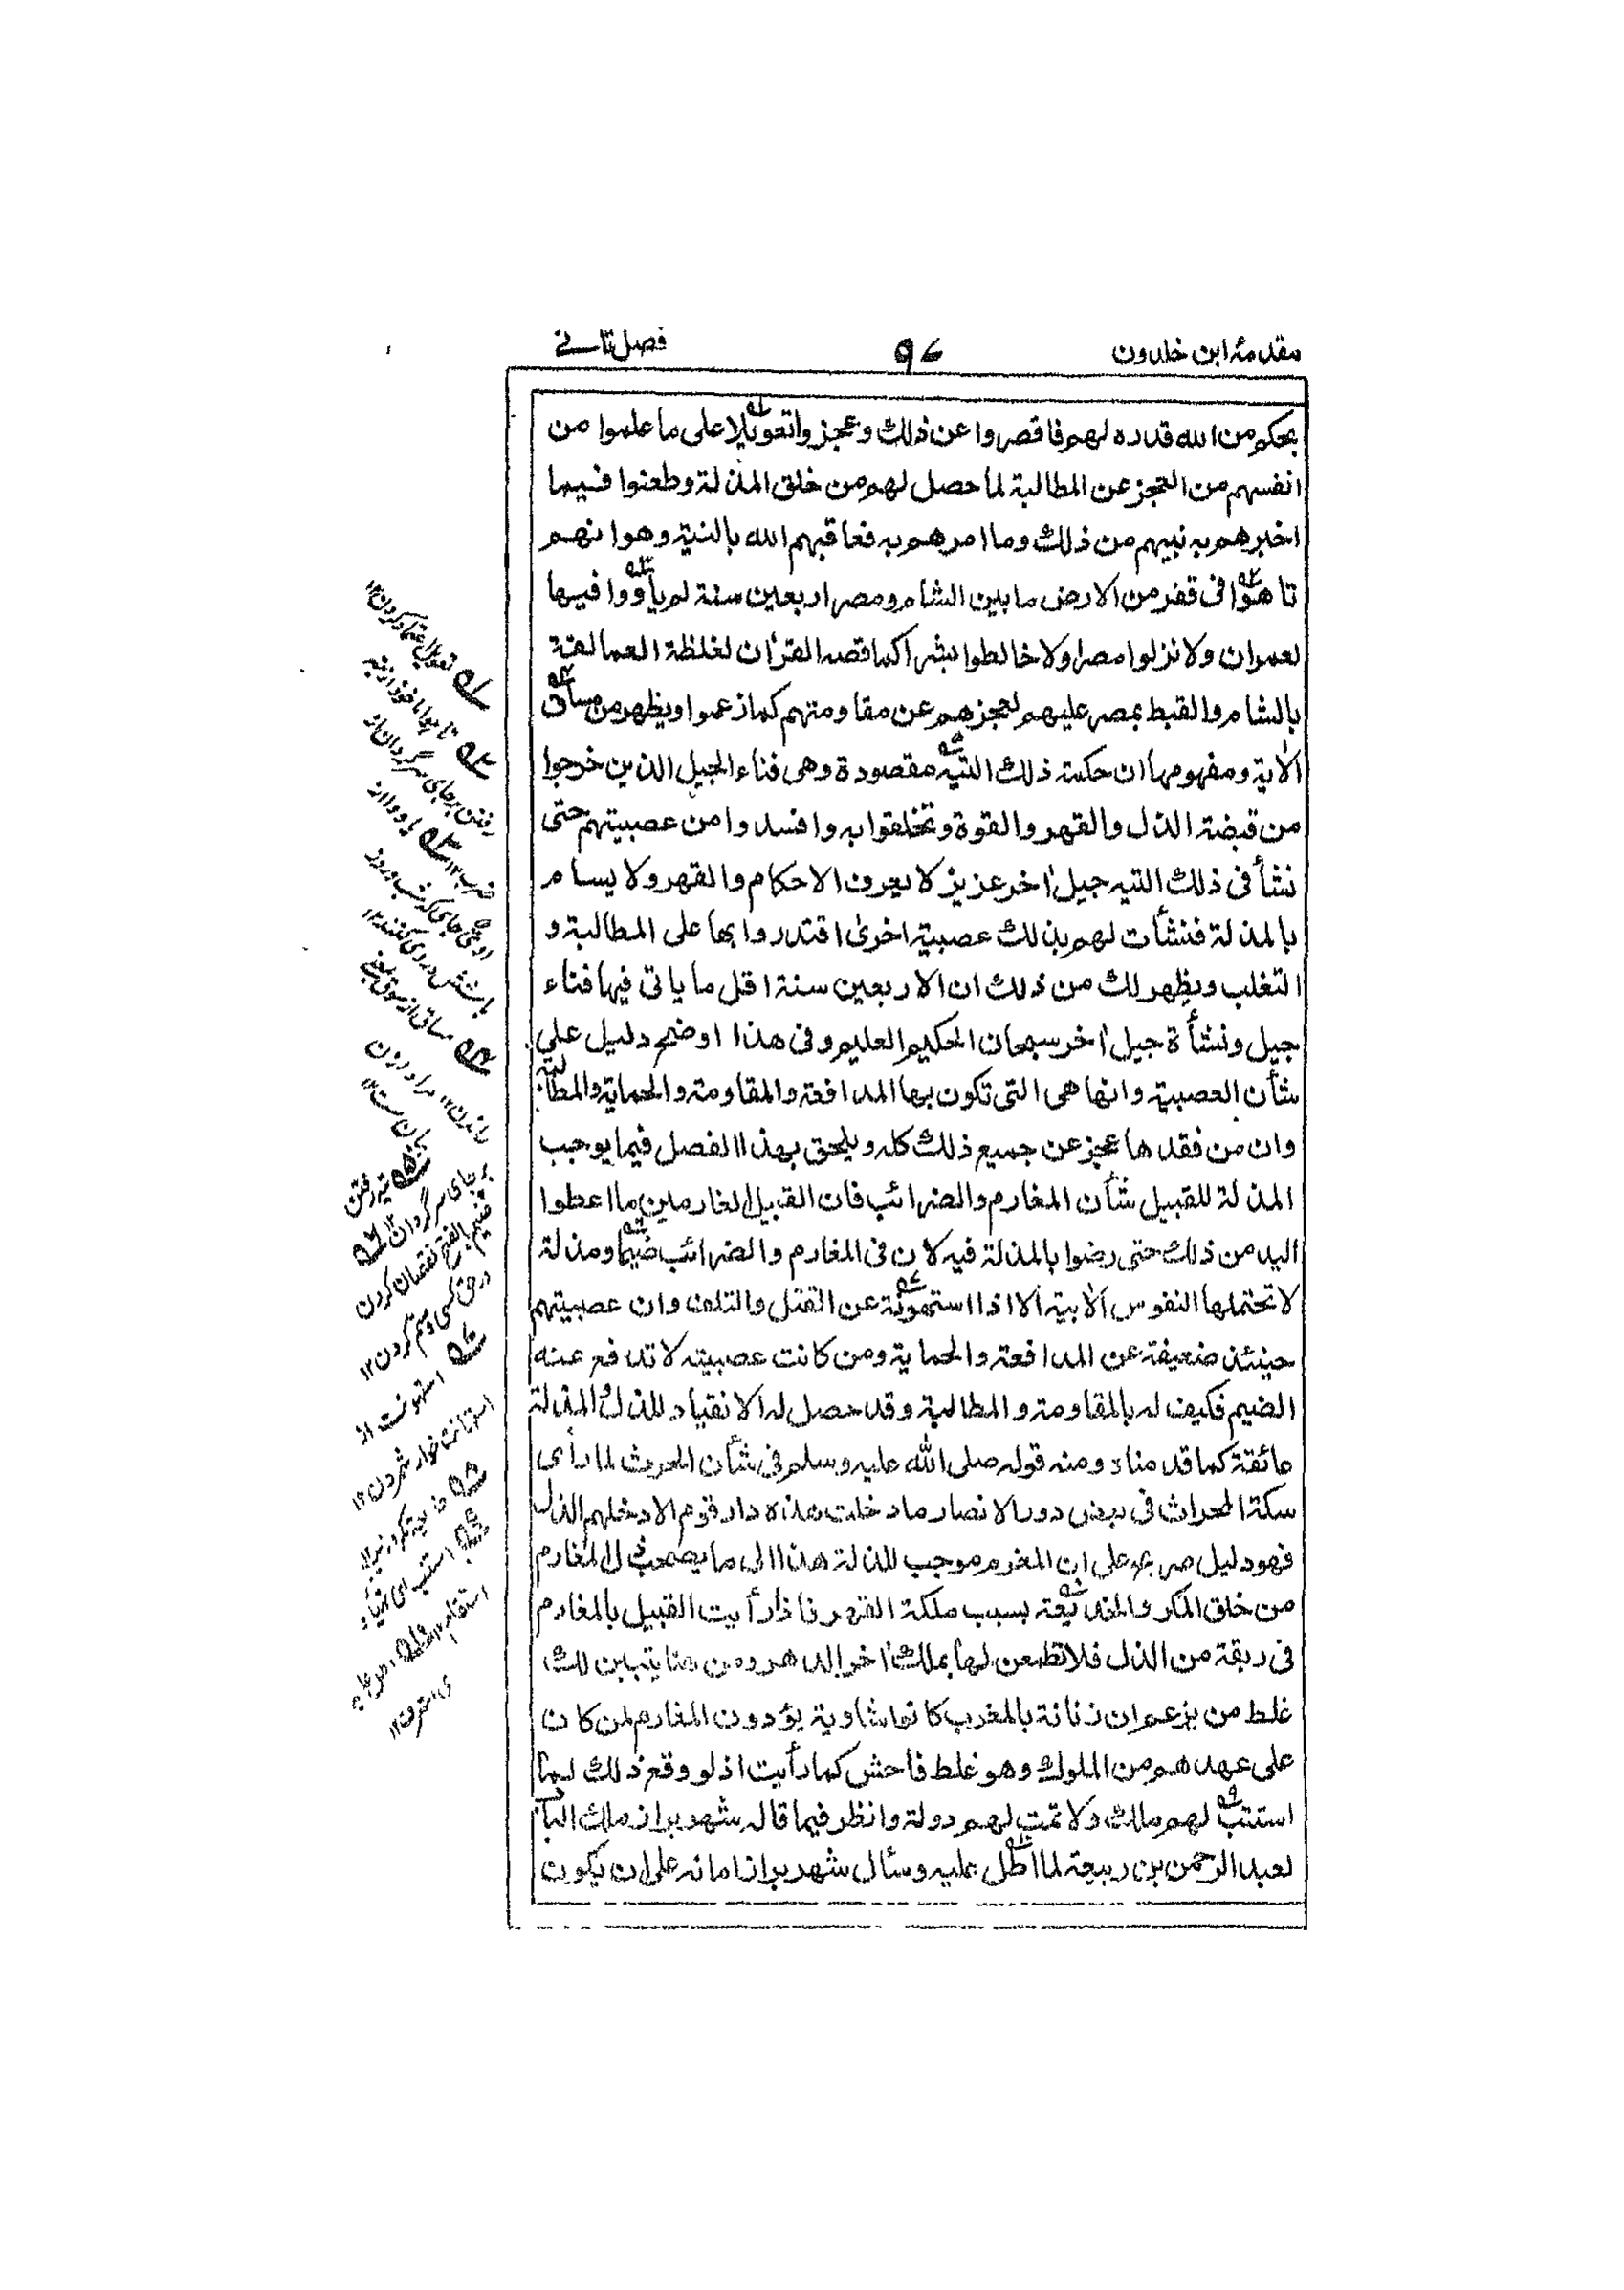 مقدمۂ ابن خلدون
٩٧
فصل ثانے
بحكم من الله قدره لهم فاقصروا عن ذلك وعجزوا تعويلا على ما علموا من
انفسهم من العجز عن المطالبة لما حصل لهم من خلق المذلة وطعنوا فيما
اخبرهم به نبيهم من ذلك وما امرهم به فعاقبهم الله بالتية وهو انهم
تاهوا فى قفر من الارض ما بين الشام ومصر اربعين سنة لم يأووا فيها
لعمران ولا نزلوا مصرا ولا خالطوا بشرا كما قصه القرٰان لغلظة العمالقة
بالشام والقبط بمصر عليهم لعجزهم عن مقاومتهم كما زعموا ويظهر من مساق
الاٰية ومفهومها ان حكمة ذلك التيه مقصودة وهى فناء الجيل الذين خرجوا
من قبضة الذل والقهر والقوة وتخلقوا به وافسدوا من عصبيتهم حتى
نشأ فى ذلك التيه جيل اٰخر عزيز لا يعرف الاحكام والقهر ولا يسام
بالمذلة فنشأت لهم بذلك عصبية اخرىٰ اقتدروا بها على المطالبة و
التغلب ويظهر لك من ذلك ان الاربعين سنة اقل ما ياتى فيها فناء
جيل ونشأة جيل اٰخر سبحان الحكيم العليم وفى هذا اوضح دليل على
شأن العصبية وانها هى التى تكون بها المدافعة والمقاومة والحماية والمطالبة
وان من فقدها عجز عن جميع ذلك كله ويلحق بهذا الفصل فيما يوجب
المذلة للقبيل شأن المغارم والضرائب فان القبيل الغارمين ما اعطوا
اليد من ذلك حتى رضوا بالمذلة فيه لان فى المغارم والضرائب ضيما ومذلة
لا تحتملها النفوس الاٰبية الا اذا استهونته عن القتل والتلف وان عصبيتهم
حينئذ ضعيفة عن المدافعة والحماية ومن كانت عصبيته لا تدفع عنه
الضيم فكيف له بالمقاومة والمطالبة وقد حصل له الانقياد للذل والمذلة
عائقة كما قدمناه ومنه قوله صلى الله عليه وسلم فى شأن الحرث لما رأى
سكة المحراث فى بعض دور الانصار ما دخلت هذه دار قوم الا دخلهم الذل
فهو دليل صريح على ان المغرم موجب للذلة هذا الى ما يصحب ذل المغارم
من خلق المكر والخديعة بسبب ملكة القهر فاذا رأيت القبيل بالمغارم
فى ربقة من الذل فلا تطمعن لها بملك اٰخر الدهر ومن هنا يتبين لك
غلط من يزعم ان زناتة بالمغرب كانوا شاوية يؤدون المغارم لمن كان
على عهدهم من الملوك وهو غلط فاحش كما رأيت اذ لو وقع ذلك لما
استتب لهم ملك ولا تمت لهم دولة وانظر فيما قاله شهربراز ملك الباب
لعبد الرحمن بن ربيعة لما اطل عليه وسأل شهربراز امانه على ان يكون
؎١ تعويل اعتماد كردن ١٢
؎٢ تاهوا ماخوذ از تيه
رفتن بر جاى سرگردان
؎٥ تيه رفتن
بر جاى سرگردان ١٢ ؎٦
ضيم بالفتح نقصان كردن
در حق كسى وستم كردن ١٢
؎٧ استهونت از
استهانت خوار شمردن ١٢